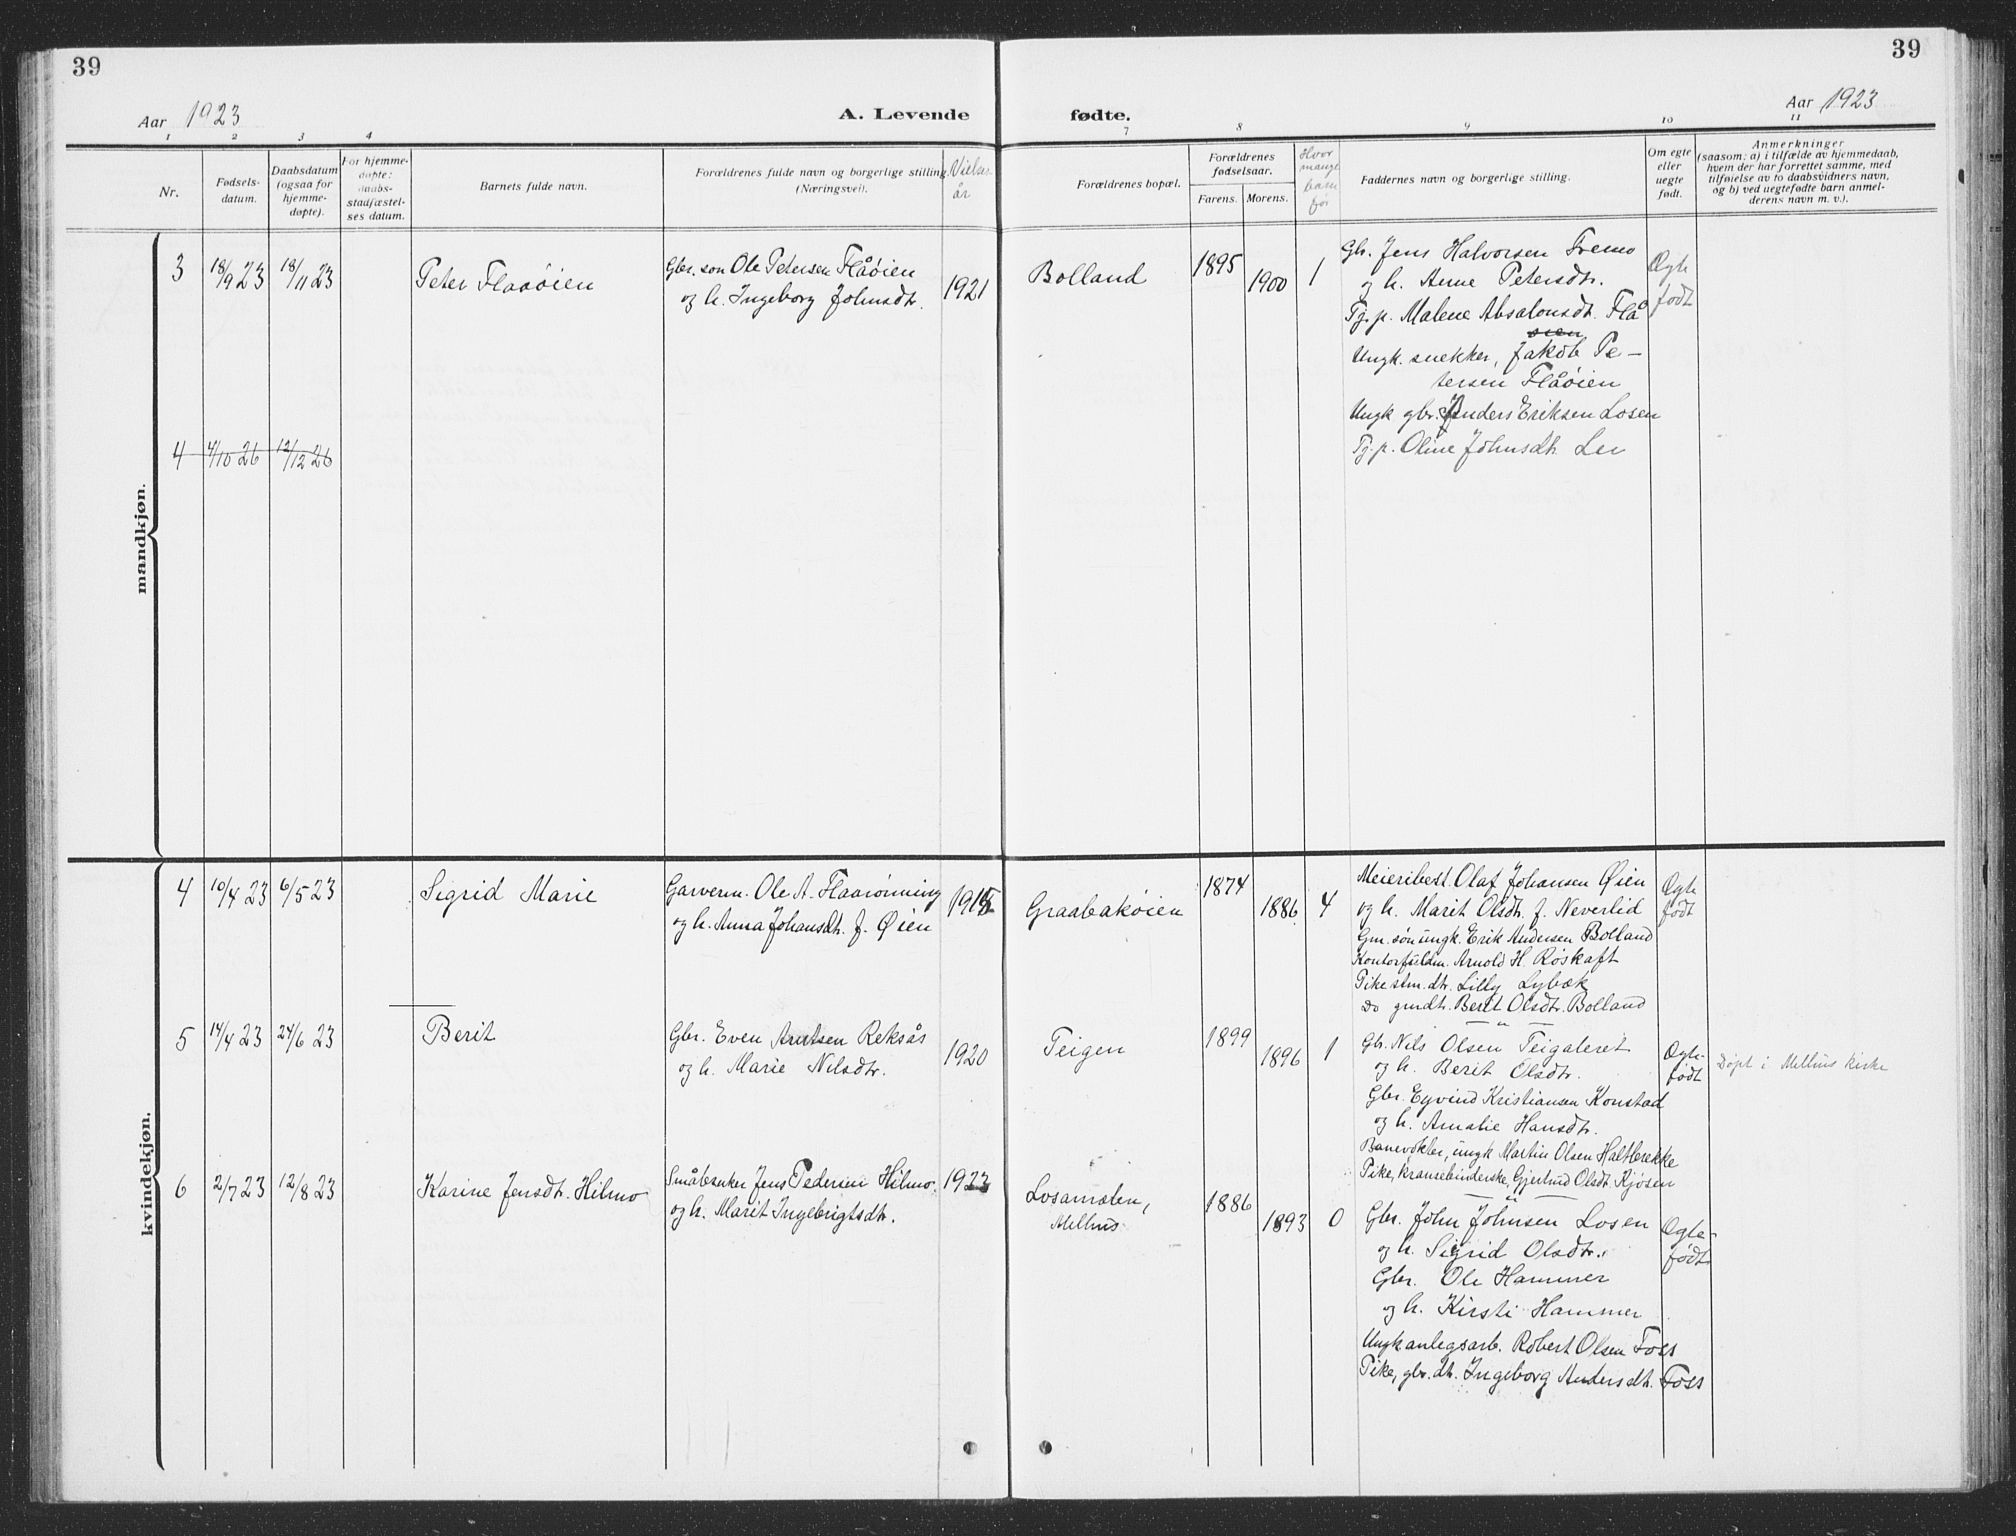 39
39
Aar 1923
A. Levende
fødte.
Aar 1923
1 2 3 4
7 8 9 10 11
Nr.
Fødsels-
datum.
Daabsdatum
(ogsaa for
hjemme-
døpte).
For hjemme-
døpte:
daabs-
stadfæstel-
ses datum.
Barnets fulde navn.
Forældrenes fulde navn og borgerlige stilling
(Næringsvei).
Vielses
år
Forældrenes bopæl.
Forældrenes
fødselsaar.
Farens. Morens.
Hvor
mange
barn
før
Faddernes navn og borgerlige stilling.
Om egte
eller
uegte
født.
Anmerkninger
(saasom: a) i tilfælde av hjemmedaab,
hvem der har forrettet samme, med
tilføielse av to daabsvidners navn,
og b) ved uegtefødte barn anmel-
derens navn m. v.).
mandkjøn.
3 18/9 23 18/11 23 Peter Flaaøien
Gbr. son Ole Petersen Flåøien
og h. Ingeborg Johnsdtr. 1921
Bolland 1895 1900 1
Gbr. Jens Halvorsen Fremo
og h. Anne Petersdtr.
Tj.p. Malene Absalonsdt. Flå
Ungk. snekker, Jakob Pe-
tersen Flåøien
Ungk gbr. Anders Eriksen Losen
Tj.p. Oline Johnsdt. Ler
Ægte
født
4 4/10 26 12/12 26
kvindekjøn.
4 10/4 23 6/5 23 Sigrid Marie
Garverm. Ole A. Flaarønning
og h. Anna Johansdt. f. Øien 1915
Graabakøien 1874 1886 4
Meieribest. Olaf Johansen Øien
og h. Marit Olsdt. f. Neverlid
Gm. søn ungk. Erik Andersen Bolland
Kontorfuldm. Arnold H. Røskaft
Pike stm. dtr. Lilly Lybæk
Do gmdtr. Berit Olsdtr. Bolland
Ægte
født
5 14/4 23 24/6 23 Berit
Gbr. Even Arntsen Reksås
og h. Marie Nilsdtr. 1920
Teigen 1899 1896 1
Gbr. Nils Olsen Teigaleret
og h. Berit Olsdtr.
Gbr. Eyvind Kristiansen Konstad
og h. Amalie Hansdtr.
Banevokter, ungk Martin Olsen Haltbrekke
Pike, kransebinderske, Gjertrud Olsdt. Kjosen
Ægte-
født
Døpt i Melhus kirke
6 2/7 23 12/8 23 Karine Jensdt. Hilmo
Småbruker Jens Pedersen Hilmo
og h. Marit Ingebrigtsdtr. 1923
Losamælen,
Melhus
1886 1893 0
Gbr. John Johnsen Losen
og h. Sigrid Olsdtr.
Gbr. Ole Hammer
og h. Kirsti Hammer
Ungk anlegsarb. Robert Olsen Foss
Pike, gbr. dt. Ingeborg Andersdt. Foss
Ægte-
født